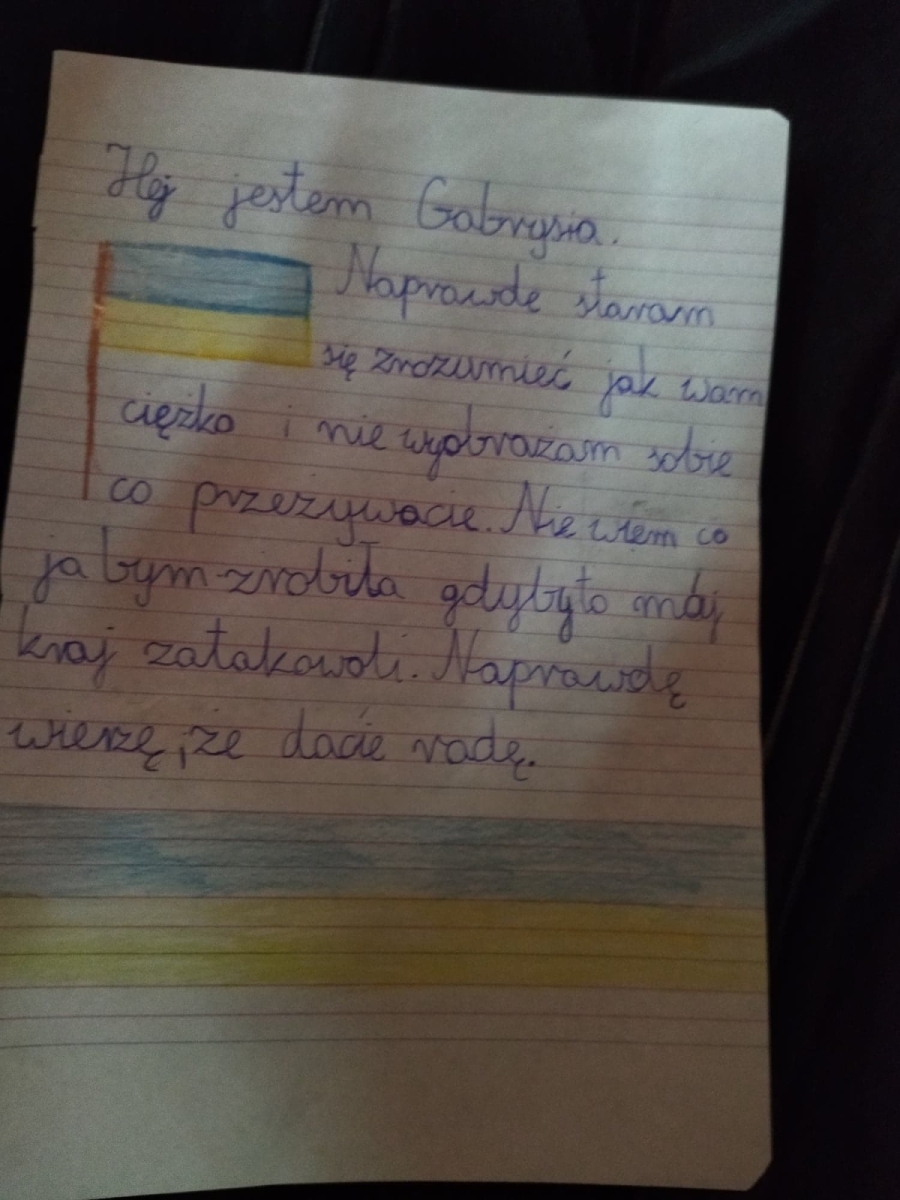 Hej jestem Gabrysia.
Naprawdę staram
się zrozumieć jak wam
ciężko i nie wyobrażam sobie
co przeżywacie. Nie wiem co
ja bym zrobiła gdybyto mój
kraj zatakowali. Naprawdę
wierzę, że dacie radę.